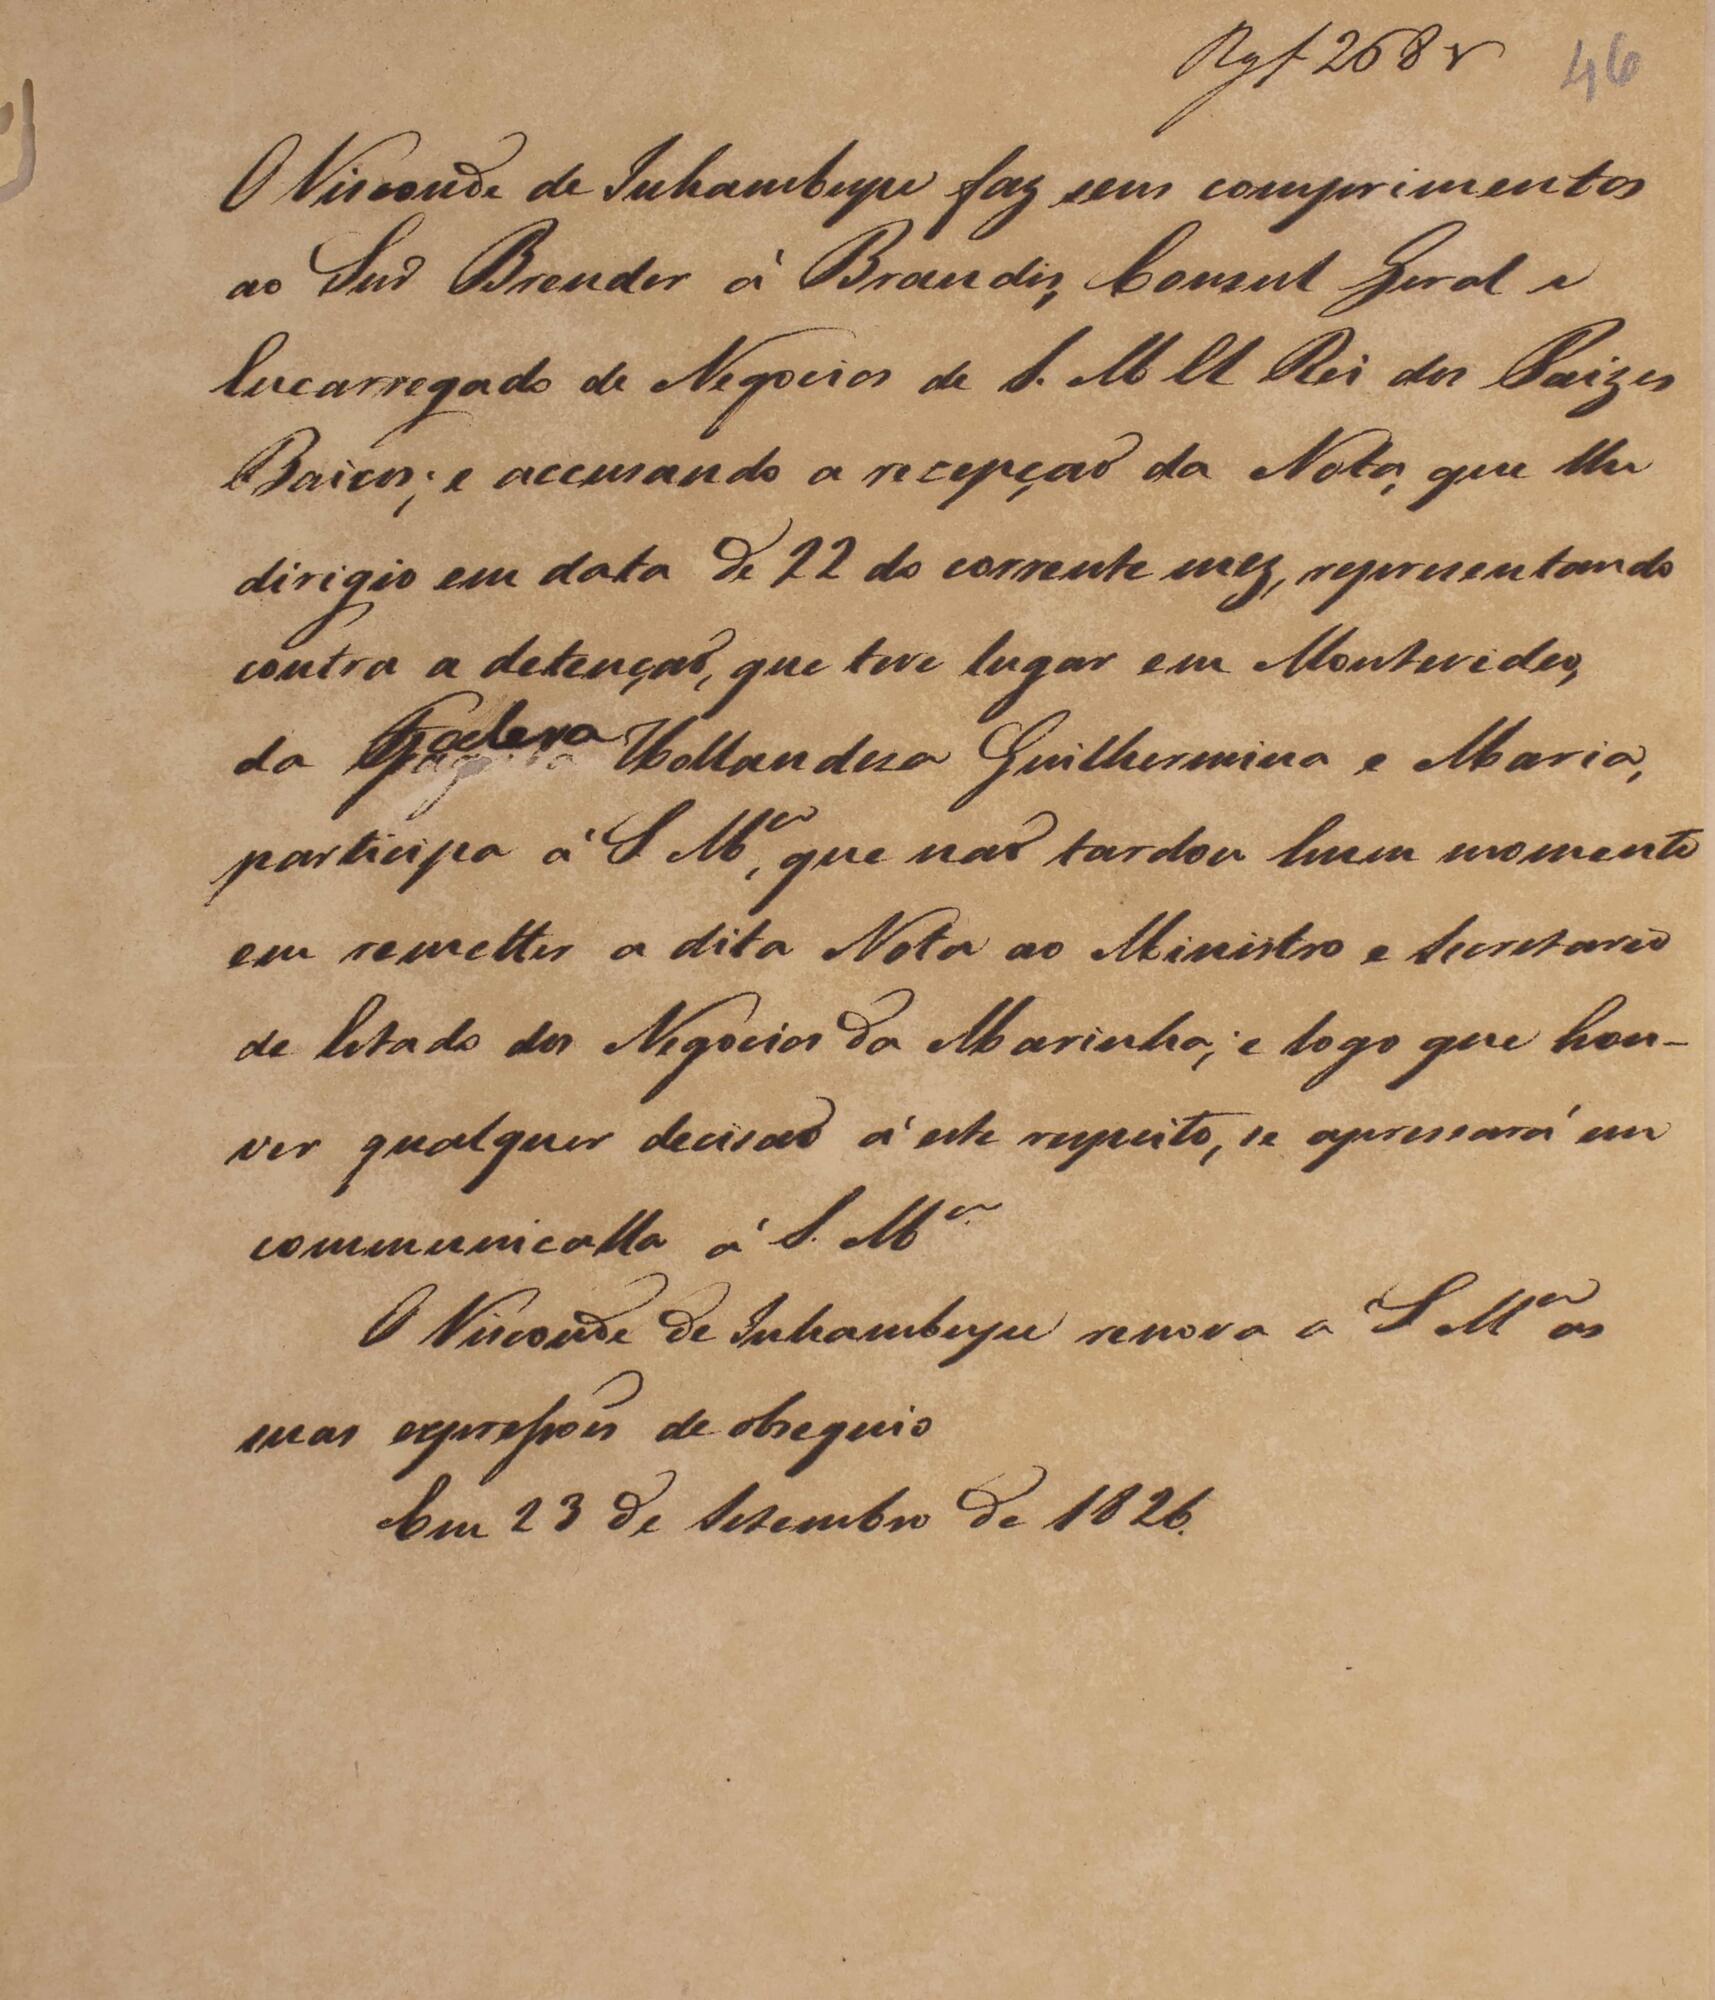 Rg f 268 v 46
O Visconde de Inhambupe faz seus comprimentos
ao Snr Brender à Brandis, Consul Geral e
Encarregado de Negocios de S. M. El Rei dos Paizes
Baixos; e accusando a recepção da Nota, que lhe
dirigio em data de 22 do corrente mez, representando
contra a detenção, que teve lugar em Montevideo,
da Hollandeza Guilhermina e Maria,
participa á S. M.ce, que não tardou hum momento
em remetter a dita Nota ao Ministro e Secretario
de Estado dos Negocios da Marinha; e logo que hou-
ver qualquer decisão á este respeito, se apressará em
communicalla á S. M.ce
O Visconde de Inhambupe renova a S. M.ce as
suas expressões de obsequio
Em 23 de Setembro de 1826.